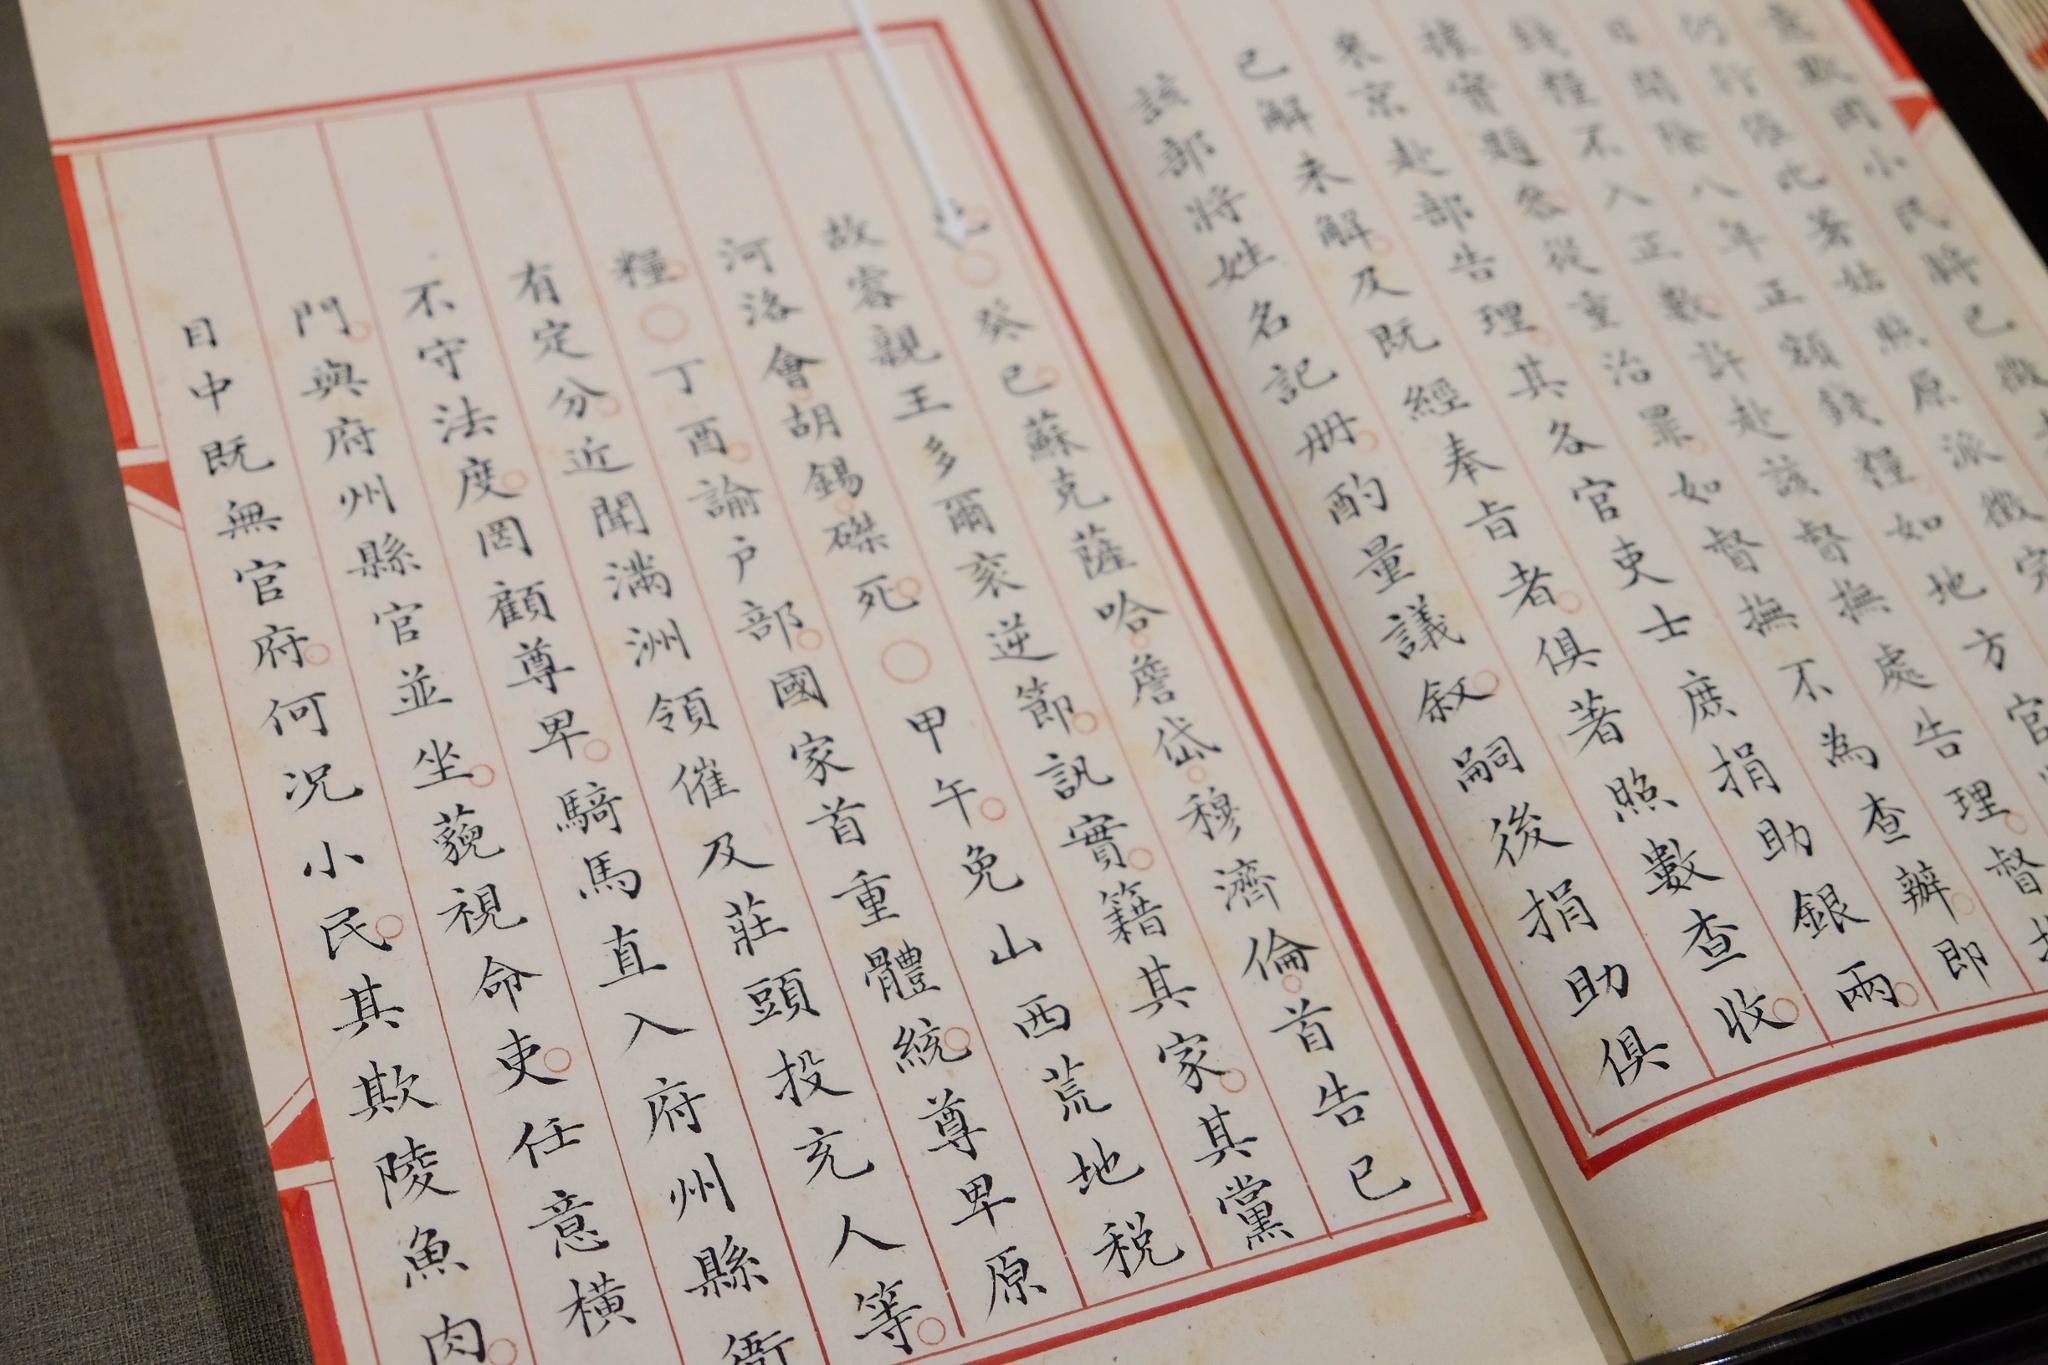 意欺罔小民將已徵
仍行催比著姑照原派徵完
日開除八年正額錢糧如地方官
錢糧不入正數許赴該督撫處告理督
據實題參從重治罪如督撫不為查辦即
來京赴部告理其各官吏士庶捐助銀兩
已解未解及既經奉旨者俱著照數查收
該部將姓名記冊酌量議敘嗣後捐助俱
○癸巳蘇克薩哈詹岱穆濟倫首告已
故睿親王多爾袞逆節訊實籍其家其黨
河洛會胡錫磔死○甲午免山西荒地稅
糧○丁酉諭戶部國家首重體統尊卑原
有定分近聞滿洲領催及莊頭投充人等
不守法度罔顧尊卑騎馬直入府州縣衙
門與府州縣官並坐藐視命吏任意橫
目中既無官府何況小民其欺陵魚肉